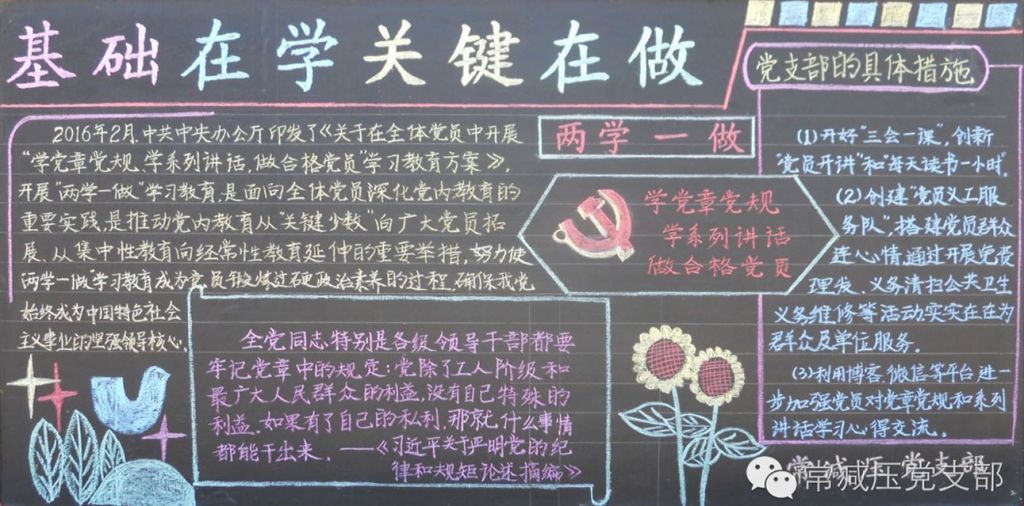 基础在学关键在做
2016年2月,中共中央办公厅印发了《关于在全体党员中开展
“学党章党规、学系列讲话,做合格党员”学习教育方案》。
开展“两学一做”学习教育,是面向全体党员深化党内教育的
重要实践,是推动党内教育从“关键少数”向广大党员拓
展、从集中性教育向经常性教育延伸的重要举措,努力使
两学一做”学习教育成为党员锻炼过硬政治素养的过程,确保我党
始终成为中国特色社会
主义事业的坚强领导核心。
两学一做
学党章党规
学系列讲话
做合格党员
全党同志特别是各级领导干部都要
牢记党章中的规定:党除了工人阶级和
最广大人民群众的利益,没有自己特殊的
利益。如果有了自己的私利,那就什么事情
都能干出来。——《习近平关于严明党的纪
律和规矩论述摘编》
党支部的具体措施
(1)开好“三会一课”,创新
“党员开讲”和“每天读书一小时”。
(2)创建“党员义工服
务队”,搭建党员群众
连心情,通过开展免费
理发、义务清扫公共卫生
义务维修等活动,实实在在为
群众及单位服务。
(3)利用博客、微信等平台进一
步加强党员对党章党规和系列
讲话学习心得交流。
常减压党支部
常减压党支部